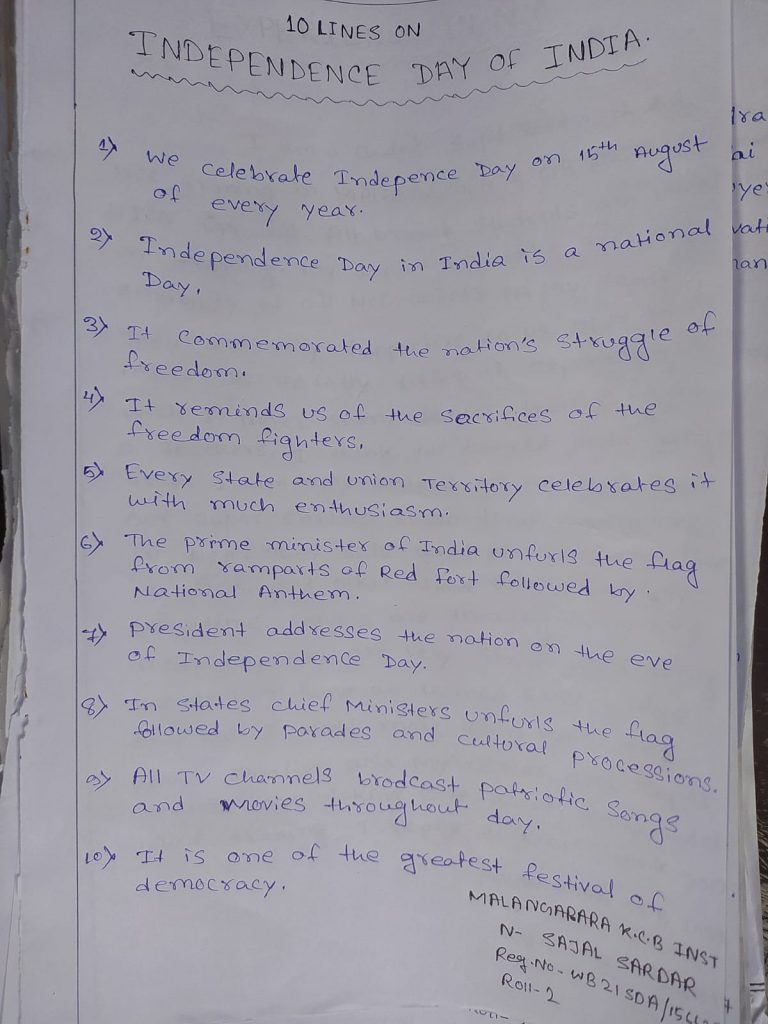 10 LINES ON
INDEPENDENCE DAY OF INDIA.
1) We celebrate Indepence Day on 15th August
of every year.
2) Independence Day in India is a national
Day.
3) It commemorated the nation's struggle of
freedom.
4) It reminds us of the sacrifices of the
freedom fighters.
5) Every state and union Territory celebrates it
with much enthusiasm.
6) The prime minister of India unfurls the flag
from ramparts of Red fort followed by.
National Anthem.
7) President addresses the nation on the eve
of Independence Day.
8) In states chief Ministers unfurls the flag
followed by parades and cultural processions.
9) All TV channels brodcast patriotic songs
and movies throughout day.
10) It is one of the greatest festival of
democracy.
MALANGABARA K.C.B INST
N- SAJAL SARDAR
Reg.No- WB21SDA/
Roll-2